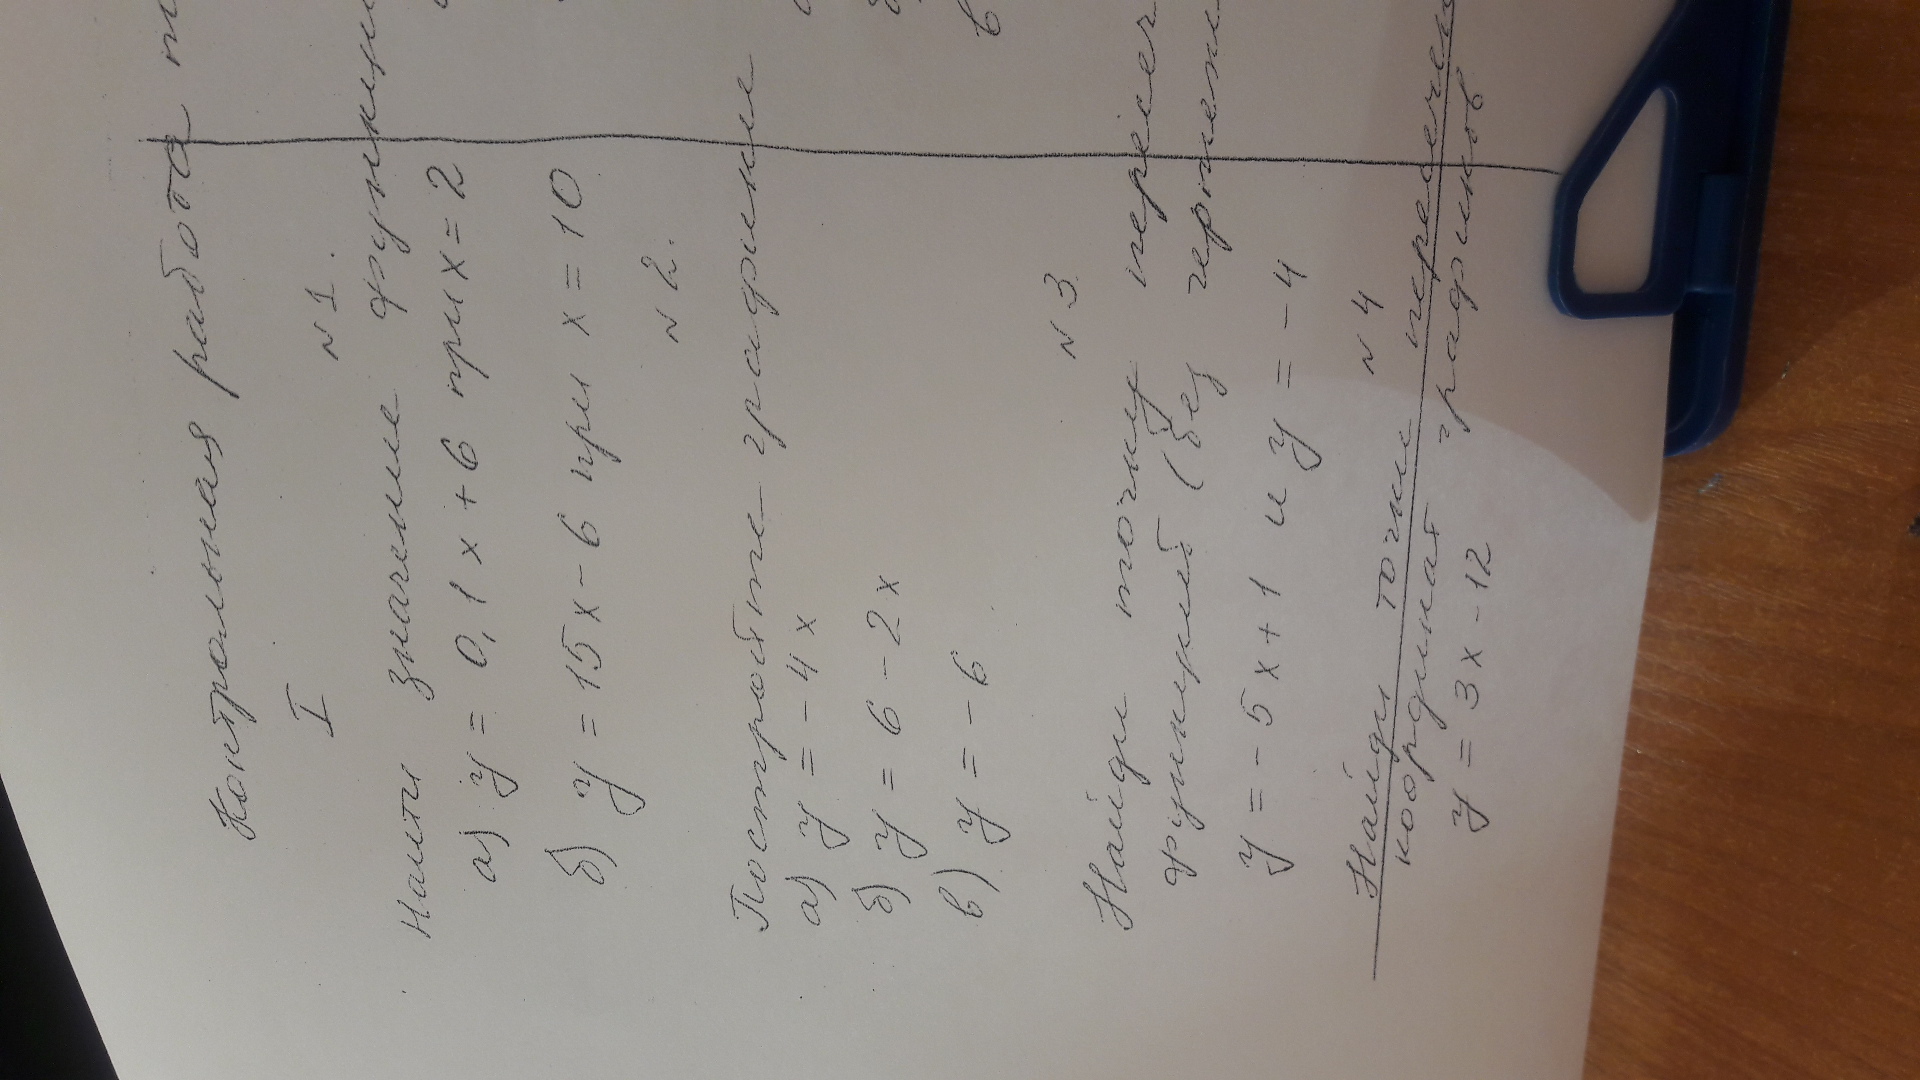 Контрольная работа
I
N 1.
Найти значение функции
а) y = 0,1x + 6 при x = 2
б) y = 15x - 6 при x = 10
N 2.
Постройте графики
а) y = -4x
б) y = 6 - 2x
в) y = -6
в
N 3
Найди точку пересеч
функций (без чертежи
y = -5x + 1 и y = -4
N 4
Найди точки пересечени
координат графиков
y = 3x - 12